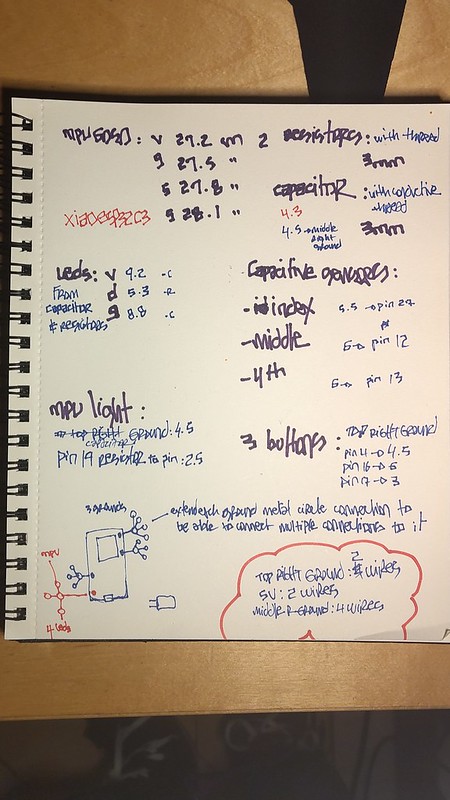 MPU6050: V 27.2 cm
g 27.5 "
S 27.8 "
g 28.1 "
xiaoesp32c3
2 resistors: with thread
3mm
capacitor: with conductive
thread
4.3
3mm
4.5 → middle
right
ground
Leds: V 9.2 -C
From d 5.3 -R
capacitor g 8.8 -C
& resistors
Capacitive sensors:
- index 5.5 → pin 27
- middle 6 → pin 12
- 4th 6 → pin 13
mpu light:
top right Ground: 4.5
capacitors
pin 19 resistor to pin: 2.5
3 buttons: top right ground
pin 4 → 4.5
pin 16 → 6
pin 17 → 3
3 grounds
extend each ground metal circle connection to
be able to connect multiple connections to it
mpu
4 leds
2
top right ground: wires
5V: 2 wires
middle R-ground: 4 wires